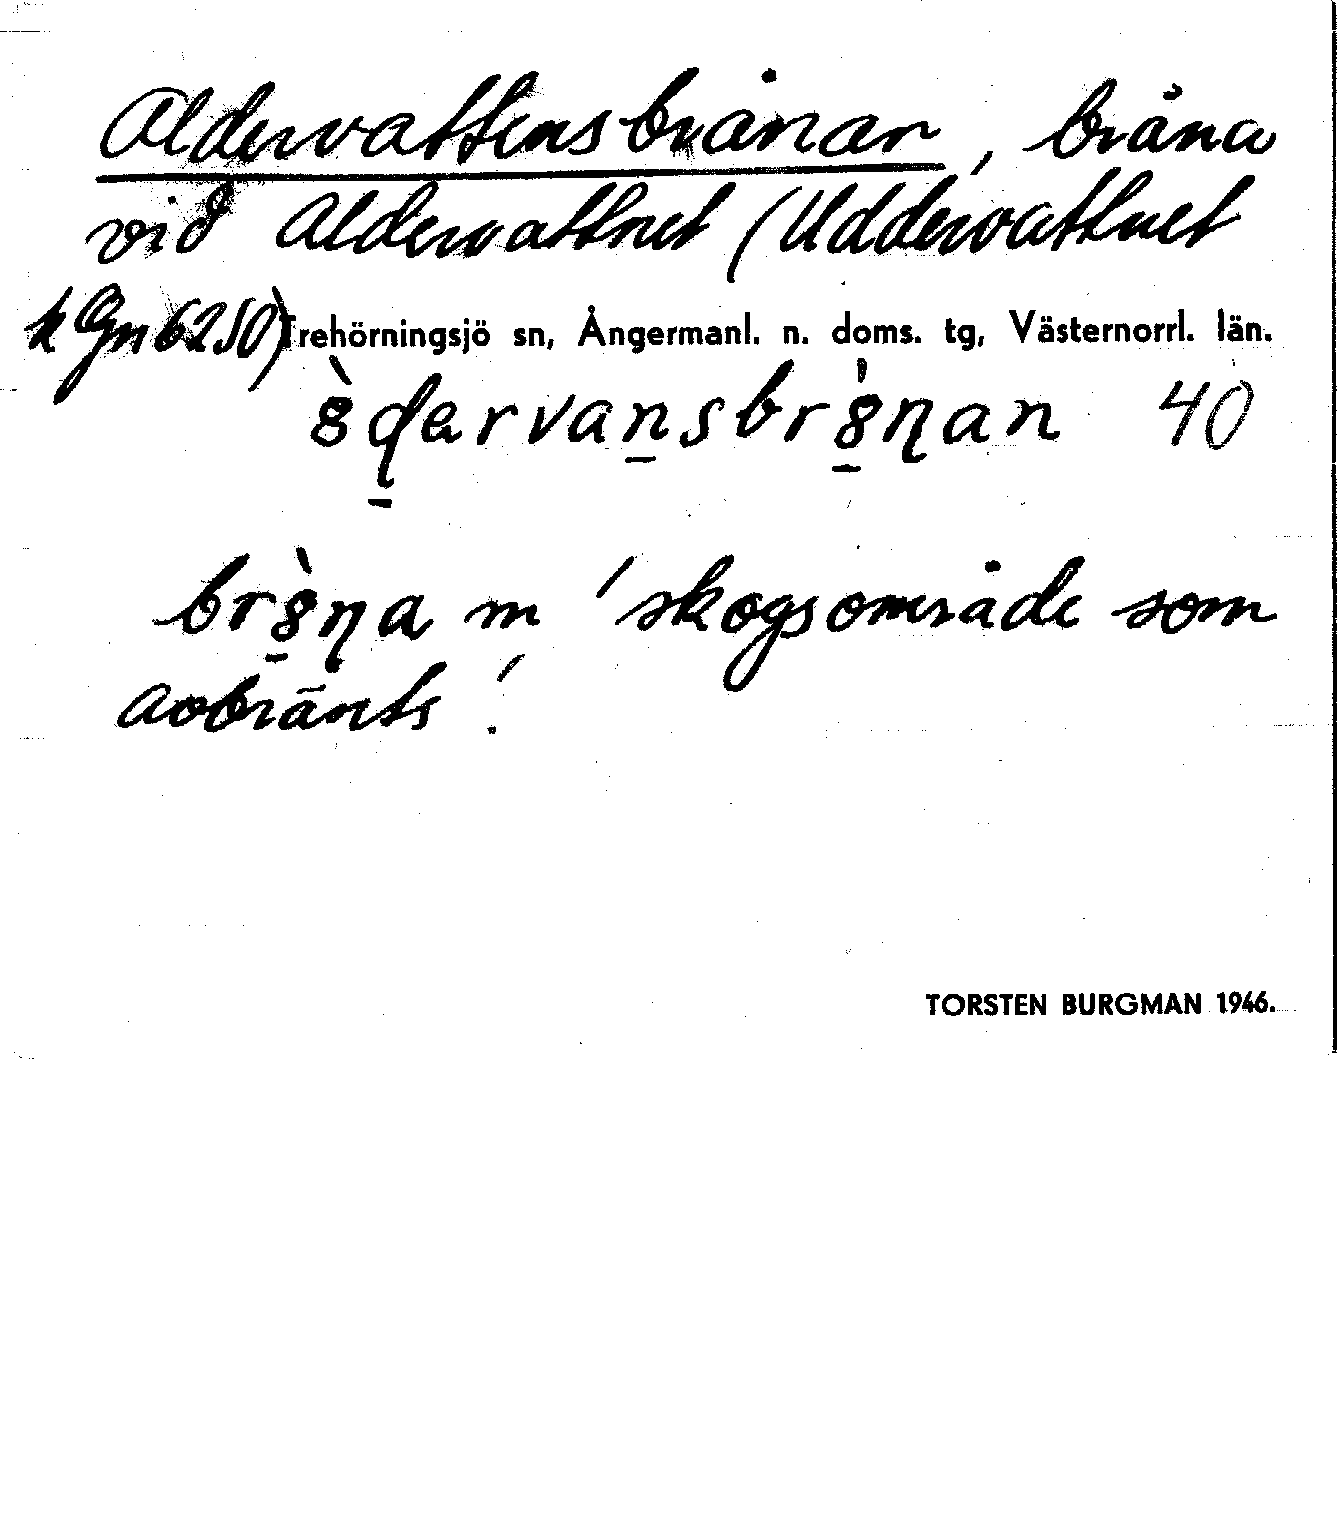 Aldervattensbrånar, bråna
vid Aldervattnet (Uddervattnet
k Gn 6250) Trehörningsjö sn, Ångermanl. n. doms. tg, Västernorrl. län.
40
m 'skogsområde som
avbränts'.
TORSTEN BURGMAN 1946.